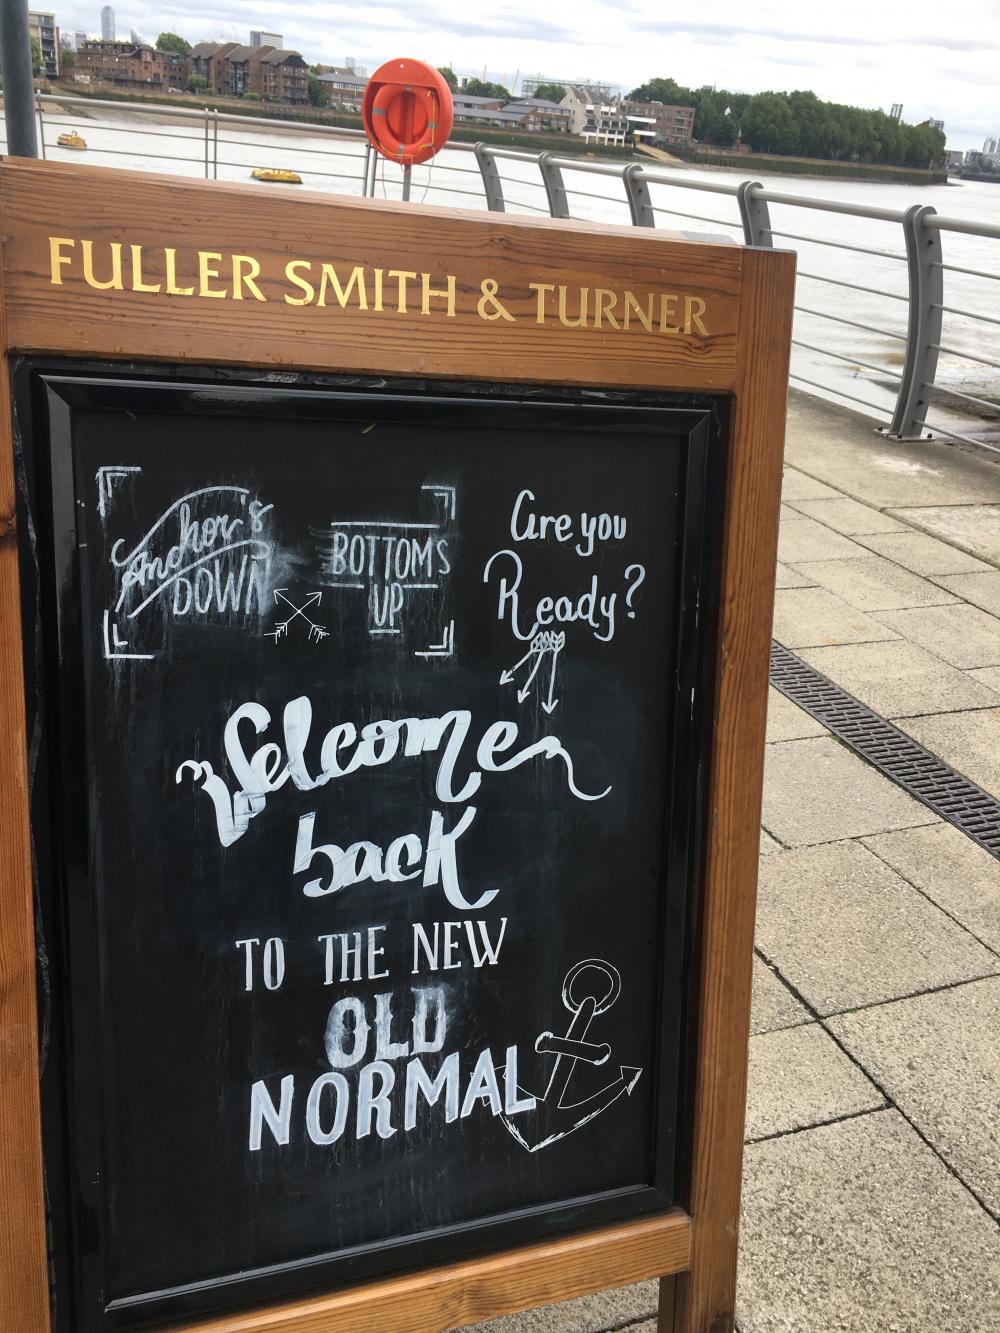 FULLER SMITH & TURNER
Anchor's
DOWN
BOTTOMS
UP
are you
Ready?
Welcome
back
TO THE NEW
OLD
NORMAL